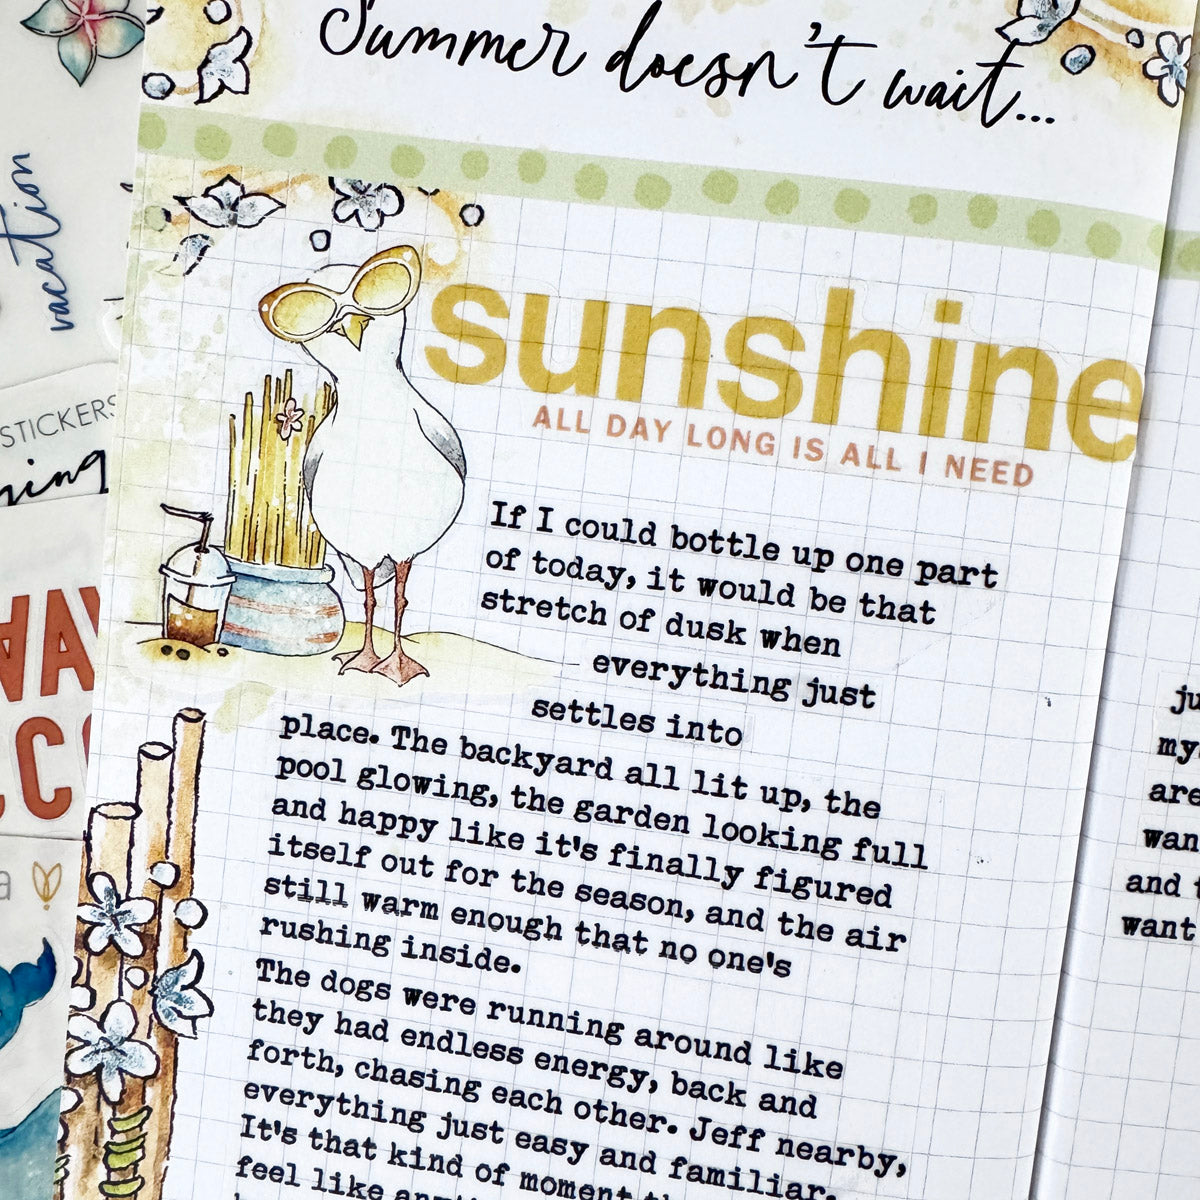 Summer doesn't wait...
vacation
sunshine
ALL DAY LONG IS ALL I NEED
STICKERS
If I could bottle up one part
of today, it would be that
stretch of dusk when
everything just
settles into
place. The backyard all lit up, the
pool glowing, the garden looking full
and happy like it's finally figured
itself out for the season, and the air
still warm enough that no one's
rushing inside.
The dogs were running around like
they had endless energy, back and
forth, chasing each other. Jeff nearby,
everything just easy and familiar.
It's that kind of moment
feel like
are
and
want